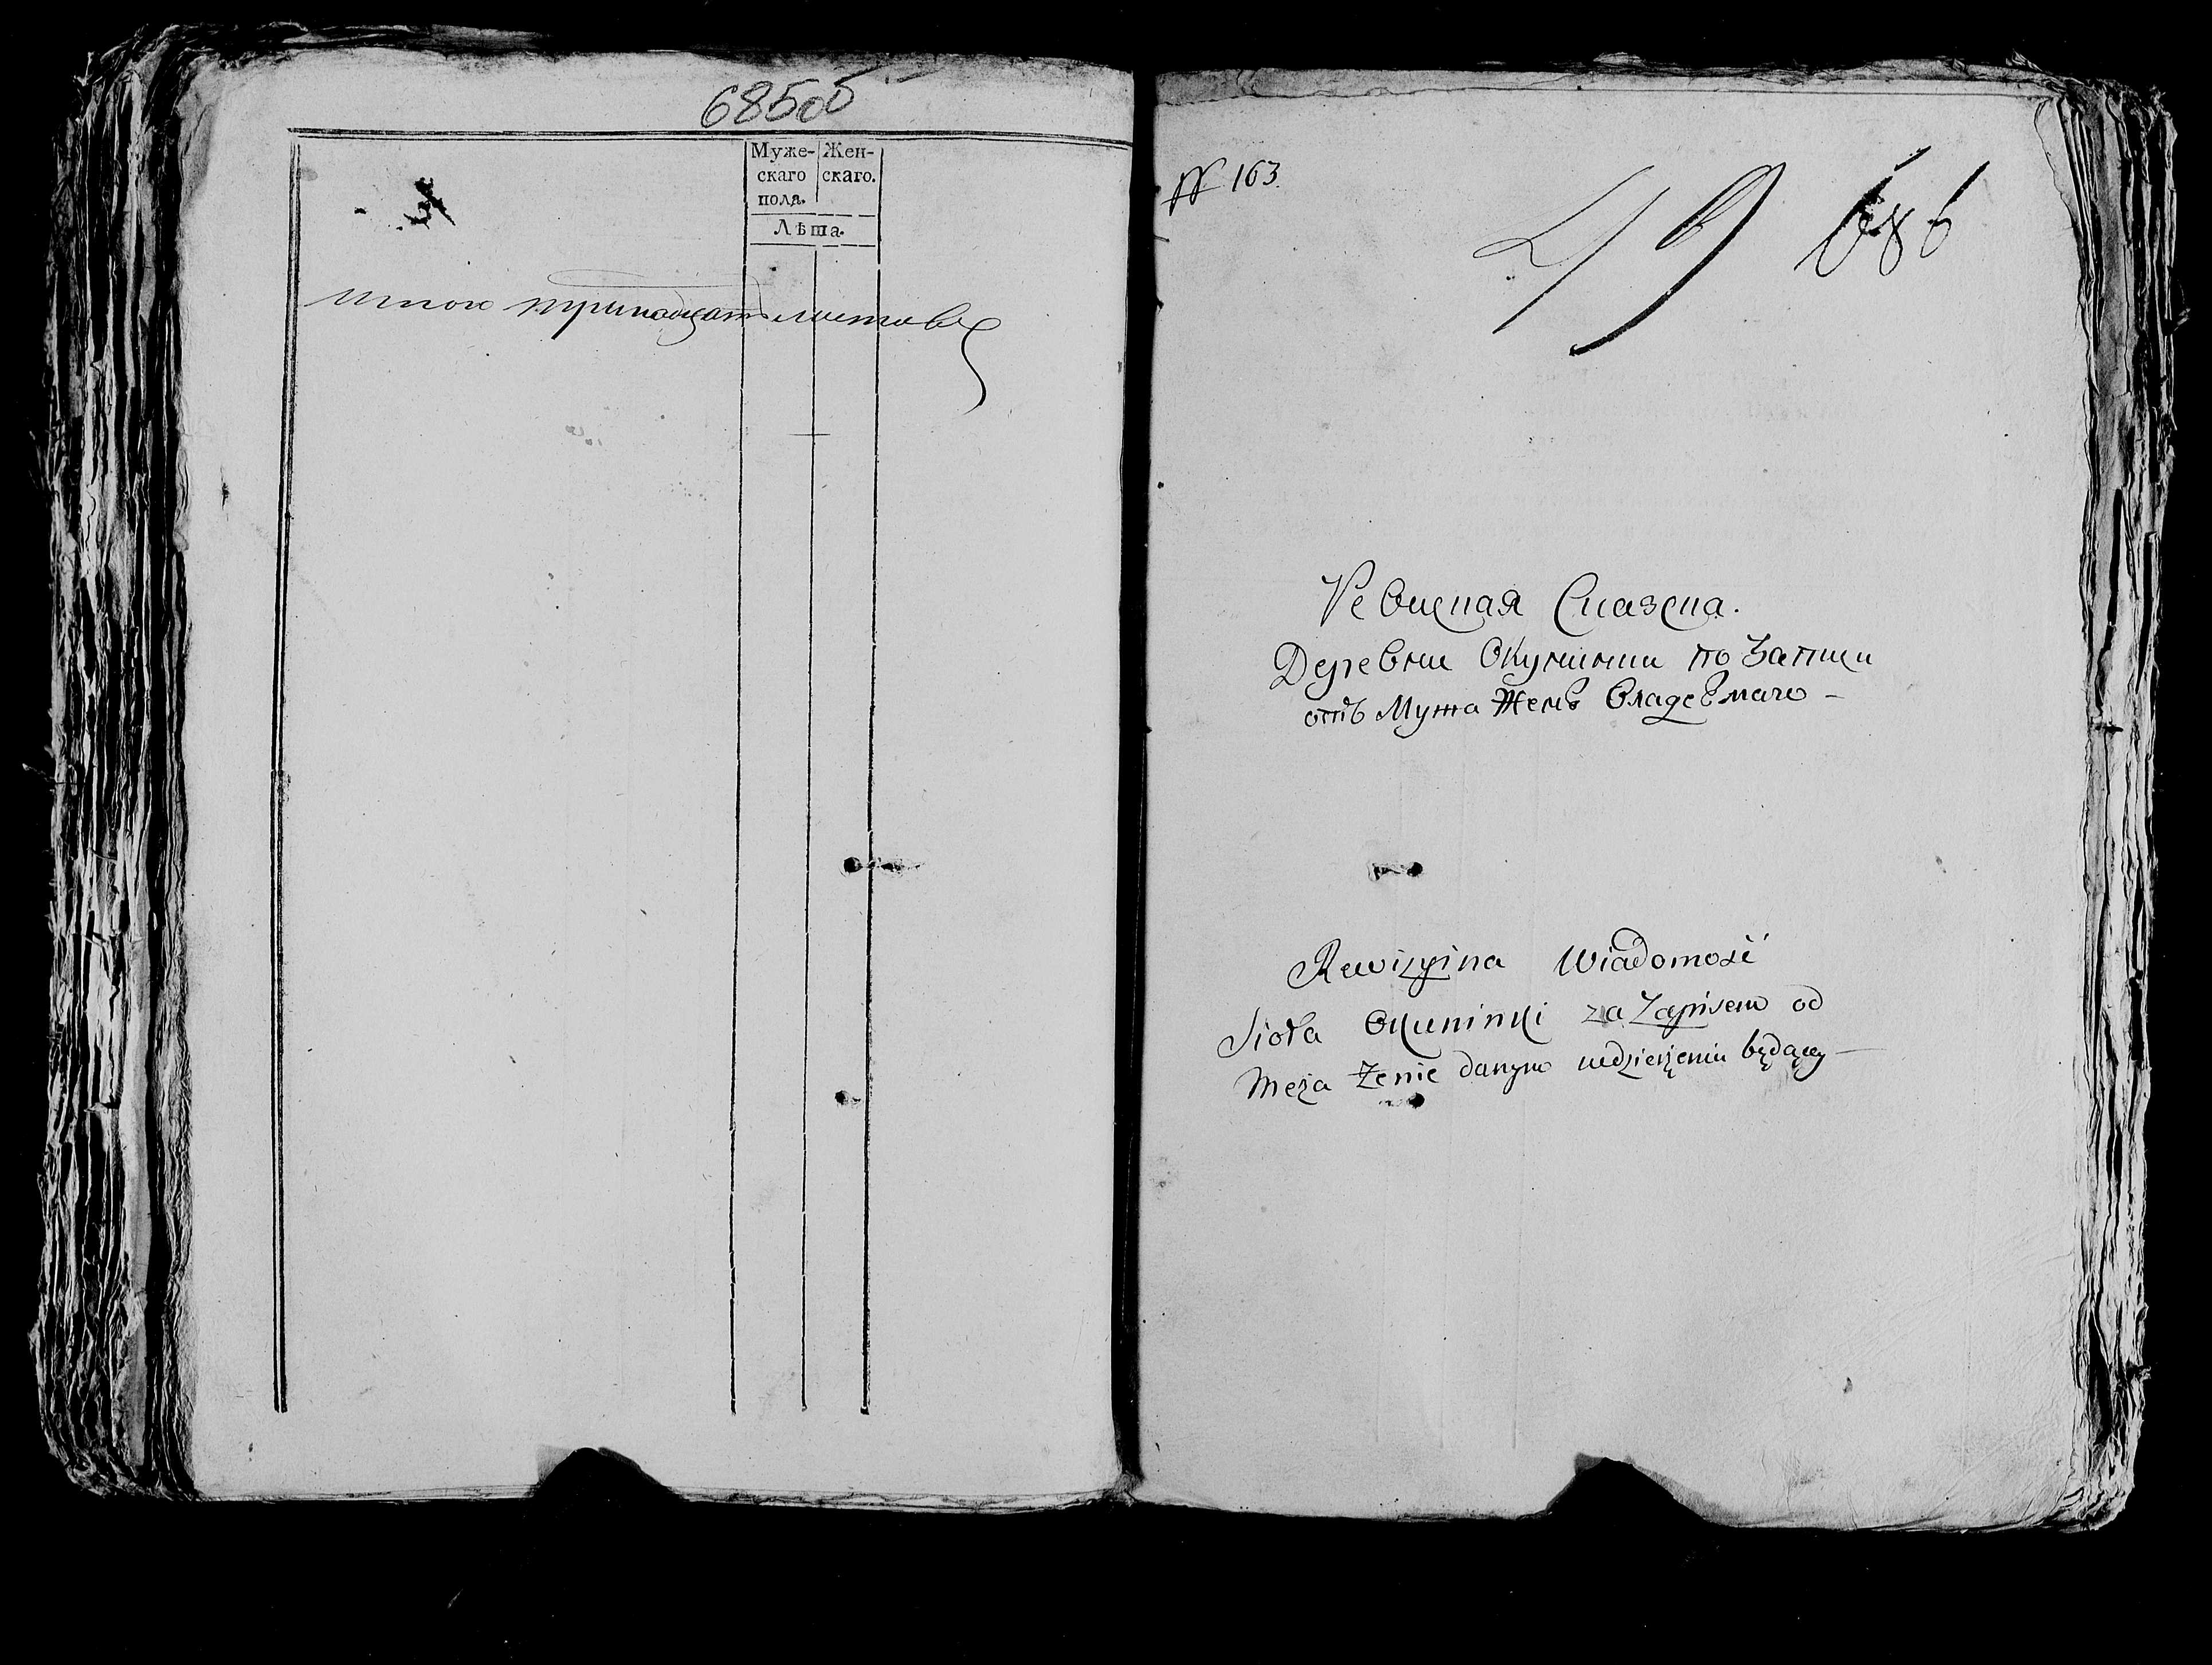 685об
Муже- Жен-
скаго скаго.
пола.
Лѣта.
итого тринадцать листовъ
№ 163.
49 686
Ревизская Сказка.
Деревни Окунинки по Записи
отъ Мужа Женѣ Владеемаго –
Rewizyina Wiadomość
Sioła Okuninki za Zapisem od
Męża Żenie danym w dzierżeniu będącey –